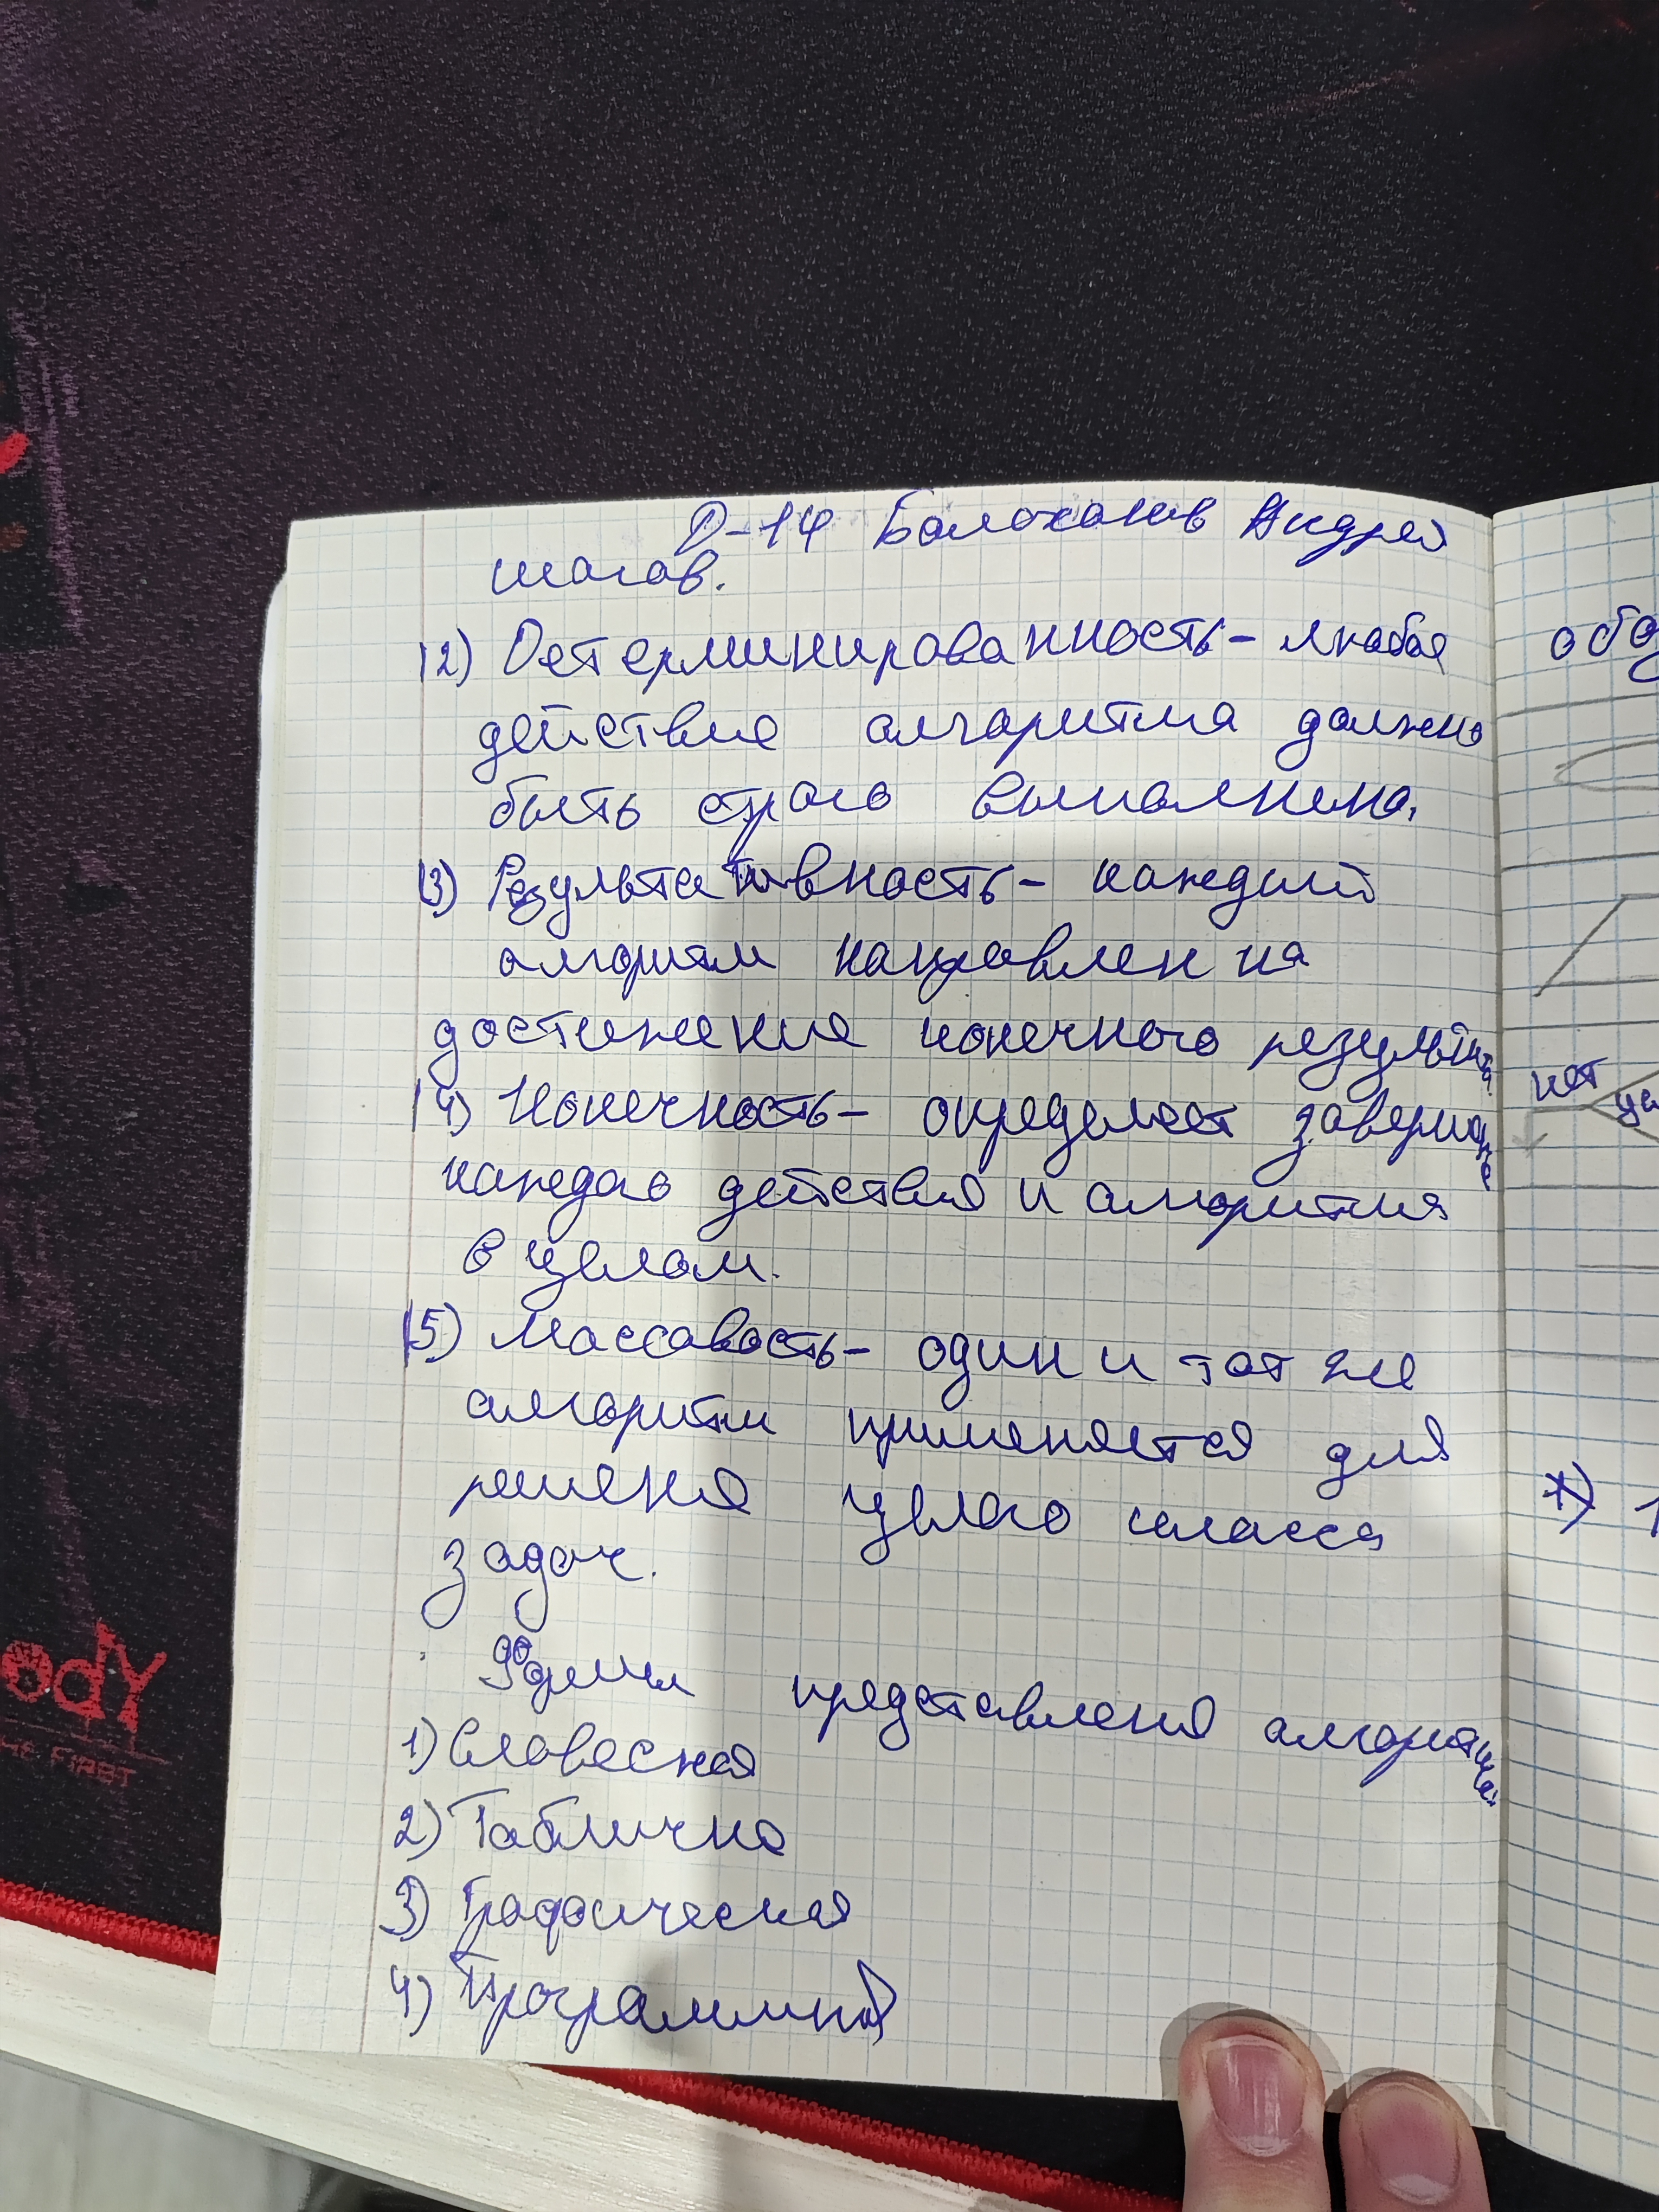 Д-14 Балоханов Андрей
шагов.
2) Детерминированность - любое
действие алгоритма должно
быть строго выполнено.
3) Результативность - каждый
алгоритм направлен на
достижение конечного результата
4) Конечность - определяет завершение
каждого действия и алгоритма
в целом.
5) Массовость - один и тот же
алгоритм применяется для
решения целого класса
задач.
Формы представления алгоритма
1) Словесная
2) Таблична
3) Графическая
4) Программная
нет
ody